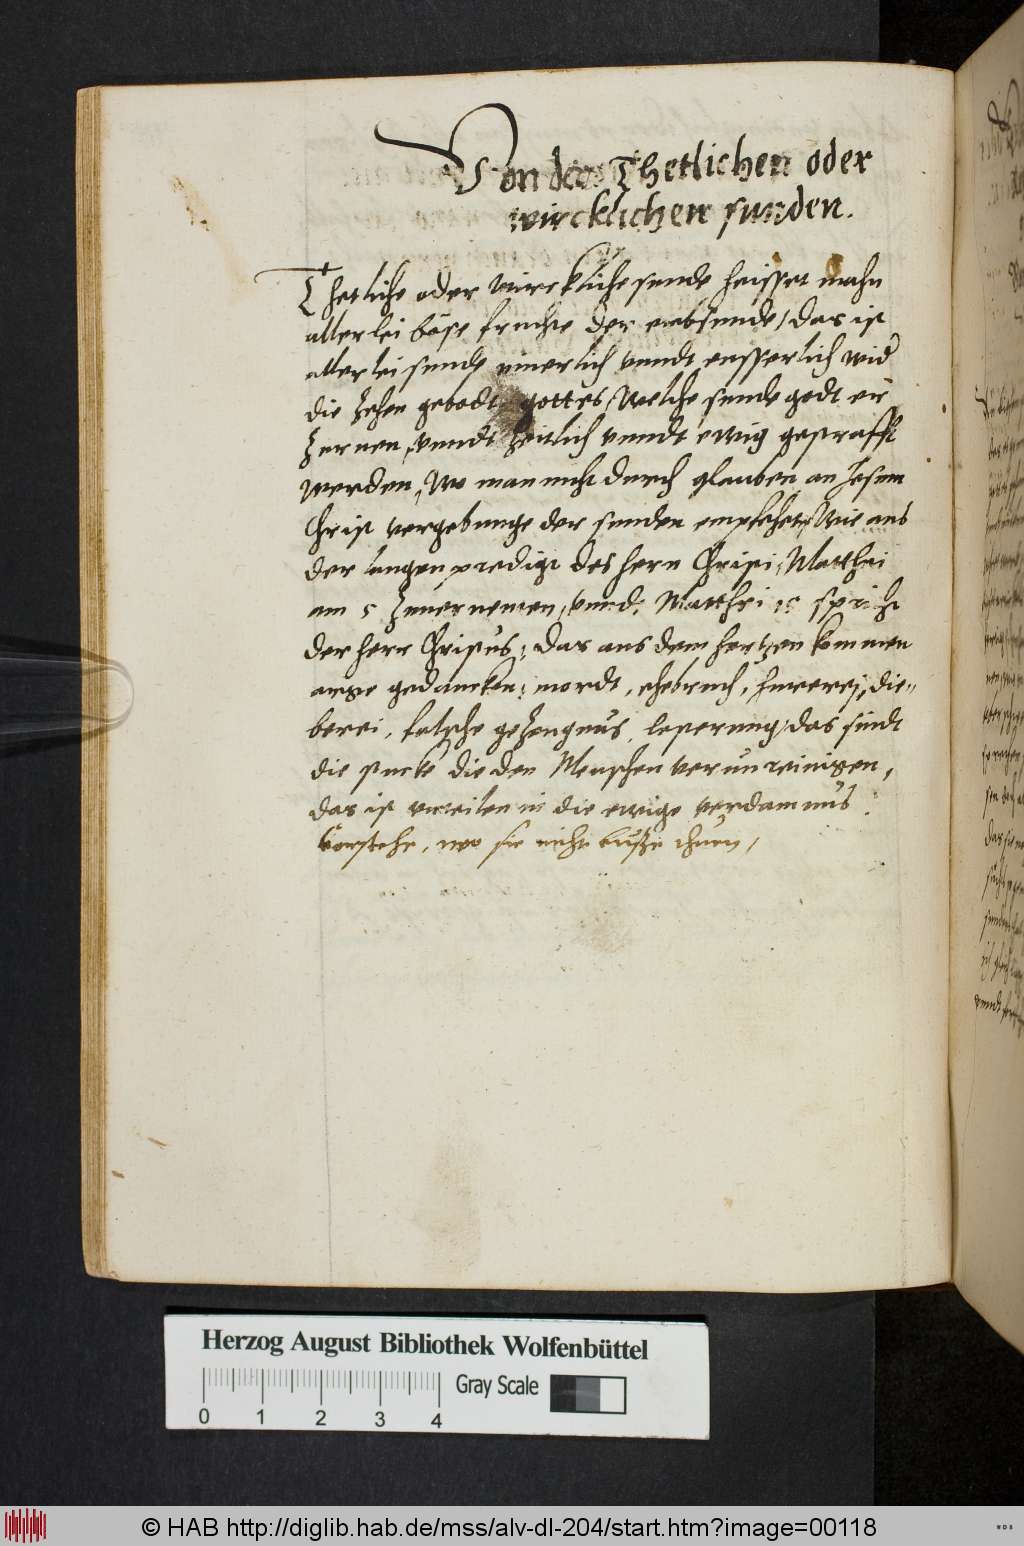 Von der Thetlichen oder
wircklichen sunden.
Thetliche oder wirckliche sunde heisset mahn
allerlei böse fruchte der erbsunde / das ist
allerlei sunde innerlich vnndt eusserlich wid
die zehen gebodt gottes, Welche sunde godt
zurnen, vnndt zeitlich vnndt ewig gestrafft
werden, Wo man nicht durch glauben an Jesum
Christ vergebunge der sunden empfehet, Wie aus
der langen predigt des hern Christi, Matthei
am 5 zuuernemen, vnnd Matthei 15 spricht
der herr Christus: Das aus dem hertzen kommen
arge gedancken: mordt, ehebruch, hurerej, die-
berei, falsche gezeugnus, lesterung / das sindt
die stucke die den Menschen verunreinigen,
das ist vrteilen in die ewige verdamnus
wo sie nicht busse thuen,
Herzog August Bibliothek Wolfenbüttel
Gray Scale
0 1 2 3 4
© HAB http://diglib.hab.de/mss/alv-dl-204/start.htm?image=00118